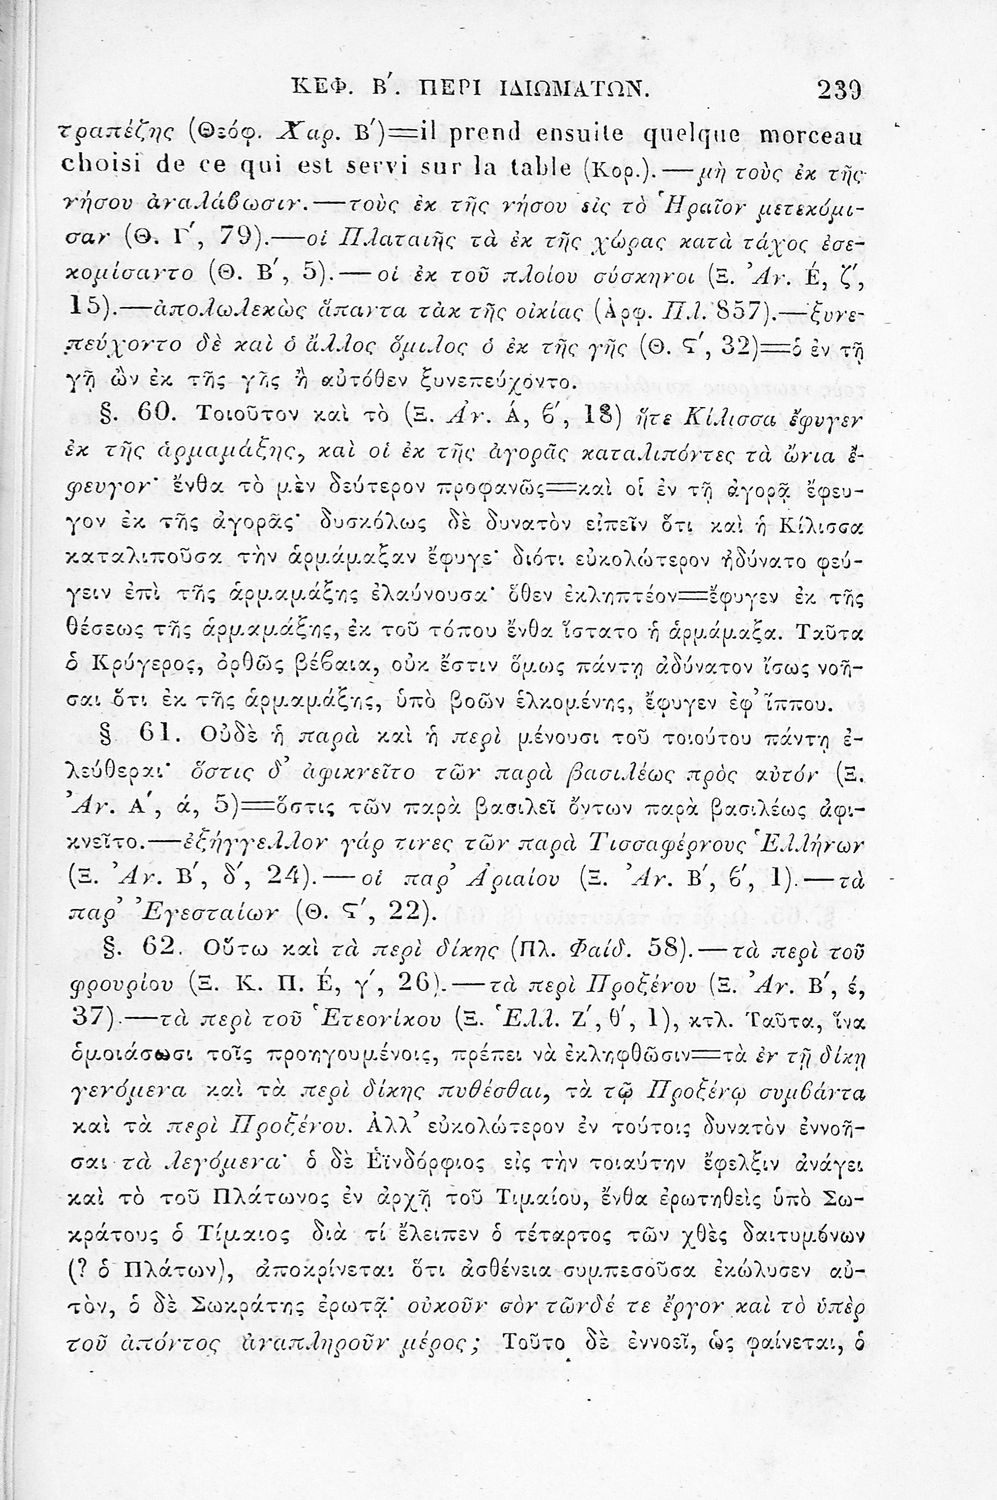 ΚΕΦ. Β΄. ΠΕΡΙ ΙΔΙΩΜΑΤΩΝ. 239
τραπέζης (Θεόφ. Χαρ. Β΄)=il prend ensuite quelque morceau
choisi de ce qui est servi sur la table (Κορ.).—μὴ τοὺς ἐκ τῆς
νήσου ἀναλάβωσιν.—τοὺς ἐκ τῆς νήσου εἰς τὸ Ἡραῖον μετεκόμι-
σαν (Θ. Γ΄, 79).—οἱ Πλαταιῆς τὰ ἐκ τῆς χώρας κατὰ τάχος ἐσε-
κομίσαντο (Θ. Β΄, 5).—οἱ ἐκ τοῦ πλοίου σύσκηνοι (Ξ. Ἀν. Έ, ζ΄,
15).—ἀπολωλεκὼς ἅπαντα τἀκ τῆς οἰκίας (Ἀρφ. Πλ. 857).—ξυνε-
πεύχοντο δὲ καὶ ὁ ἄλλος ὅμιλος ὁ ἐκ τῆς γῆς (Θ. Ϛ΄, 32)=ὁ ἐν τῇ
γῇ ὢν ἐκ τῆς γῆς ἢ αὐτόθεν ξυνεπεύχοντο.
§. 60. Τοιοῦτον καὶ τὸ (Ξ. Ἀν. Ά, ϐ΄, 18) ἥτε Κίλισσα ἔφυγεν
ἐκ τῆς ἁρμαμάξης, καὶ οἱ ἐκ τῆς ἀγορᾶς καταλιπόντες τὰ ὤνια ἔ-
φευγον· ἔνθα τὸ μὲν δεύτερον προφανῶς=καὶ οἱ ἐν τῇ ἀγορᾷ ἔφευ-
γον ἐκ τῆς ἀγορᾶς· δυσκόλως δὲ δυνατὸν εἰπεῖν ὅτι καὶ ἡ Κίλισσα
καταλιποῦσα τὴν ἁρμάμαξαν ἔφυγε· διότι εὐκολώτερον ἠδύνατο φεύ-
γειν ἐπὶ τῆς ἁρμαμάξης ἐλαύνουσα· ὅθεν ἐκληπτέον=ἔφυγεν ἐκ τῆς
θέσεως τῆς ἁρμαμάξης, ἐκ τοῦ τόπου ἔνθα ἵστατο ἡ ἁρμάμαξα. Ταῦτα
ὁ Κρύγερος, ὀρθῶς βέϐαια, οὐκ ἔστιν ὅμως πάντη ἀδύνατον ἴσως νοῆ-
σαι ὅτι ἐκ τῆς ἁρμαμάξης, ὑπὸ βοῶν ἑλκομένης, ἔφυγεν ἐφ᾽ ἵππου.
§ 61. Οὐδὲ ἡ παρὰ καὶ ἡ περὶ μένουσι τοῦ τοιούτου πάντη ἐ-
λεύθεραι· ὅστις δ᾽ ἀφικνεῖτο τῶν παρὰ βασιλέως πρὸς αὐτόν (Ξ.
Ἀν. Α΄, ά, 5)=ὅστις τῶν παρὰ βασιλεῖ ὄντων παρὰ βασιλέως ἀφι-
κνεῖτο.—ἐξήγγελλον γάρ τινες τῶν παρὰ Τισσαφέρνους Ἑλλήνων
(Ξ. Ἀν. Β΄, δ΄, 24).—οἱ παρ᾽ Ἀριαίου (Ξ. Ἀν. Β΄, ϐ΄, 1).—τὰ
παρ᾽ Ἐγεσταίων (Θ. Ϛ΄, 22).
§. 62. Οὕτω καὶ τὰ περὶ δίκης (Πλ. Φαίδ. 58).—τὰ περὶ τοῦ
φρουρίου (Ξ. Κ. Π. Έ, γ΄, 26).—τὰ περὶ Προξένου (Ξ. Ἀν. Β΄, έ,
37).—τὰ περὶ τοῦ Ἐτεονίκου (Ξ. Ἑλλ. Ζ΄, θ΄, 1), κτλ. Ταῦτα, ἵνα
ὁμοιάσωσι τοῖς προηγουμένοις, πρέπει νὰ ἐκληφθῶσιν=τὰ ἐν τῇ δίκῃ
γενόμενα καὶ τὰ περὶ δίκης πυθέσθαι, τὰ τῷ Προξένῳ συμβάντα
καὶ τὰ περὶ Προξένου. Ἀλλ᾽ εὐκολώτερον ἐν τούτοις δυνατὸν ἐννοῆ-
σαι τὰ λεγόμενα· ὁ δὲ Ἑϊνδόρφιος εἰς τὴν τοιαύτην ἔφελξιν ἀνάγει
καὶ τὸ τοῦ Πλάτωνος ἐν ἀρχῇ τοῦ Τιμαίου, ἔνθα ἐρωτηθεὶς ὑπὸ Σω-
κράτους ὁ Τίμαιος διὰ τί ἔλειπεν ὁ τέταρτος τῶν χθὲς δαιτυμόνων
(? ὁ Πλάτων), ἀποκρίνεται ὅτι ἀσθένεια συμπεσοῦσα ἐκώλυσεν αὐ-
τὸν, ὁ δὲ Σωκράτης ἐρωτᾷ· οὐκοῦν σὸν τῶνδέ τε ἔργον καὶ τὸ ὑπὲρ
τοῦ ἀπόντος ἀναπληροῦν μέρος; Τοῦτο δὲ ἐννοεῖ, ὡς φαίνεται, ὁ